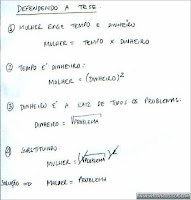 DEFENDENDO A TESE:
① MULHER EXIGE TEMPO E DINHEIRO
MULHER = TEMPO X DINHEIRO
② TEMPO É DINHEIRO:
MULHER = (DINHEIRO)²
③ DINHEIRO É A RAIZ DE TODOS OS PROBLEMAS:
DINHEIRO = √PROBLEMA
④ SUBSTITUINDO:
MULHER = (√PROBLEMA)²
SOLUÇÃO => MULHER = PROBLEMA